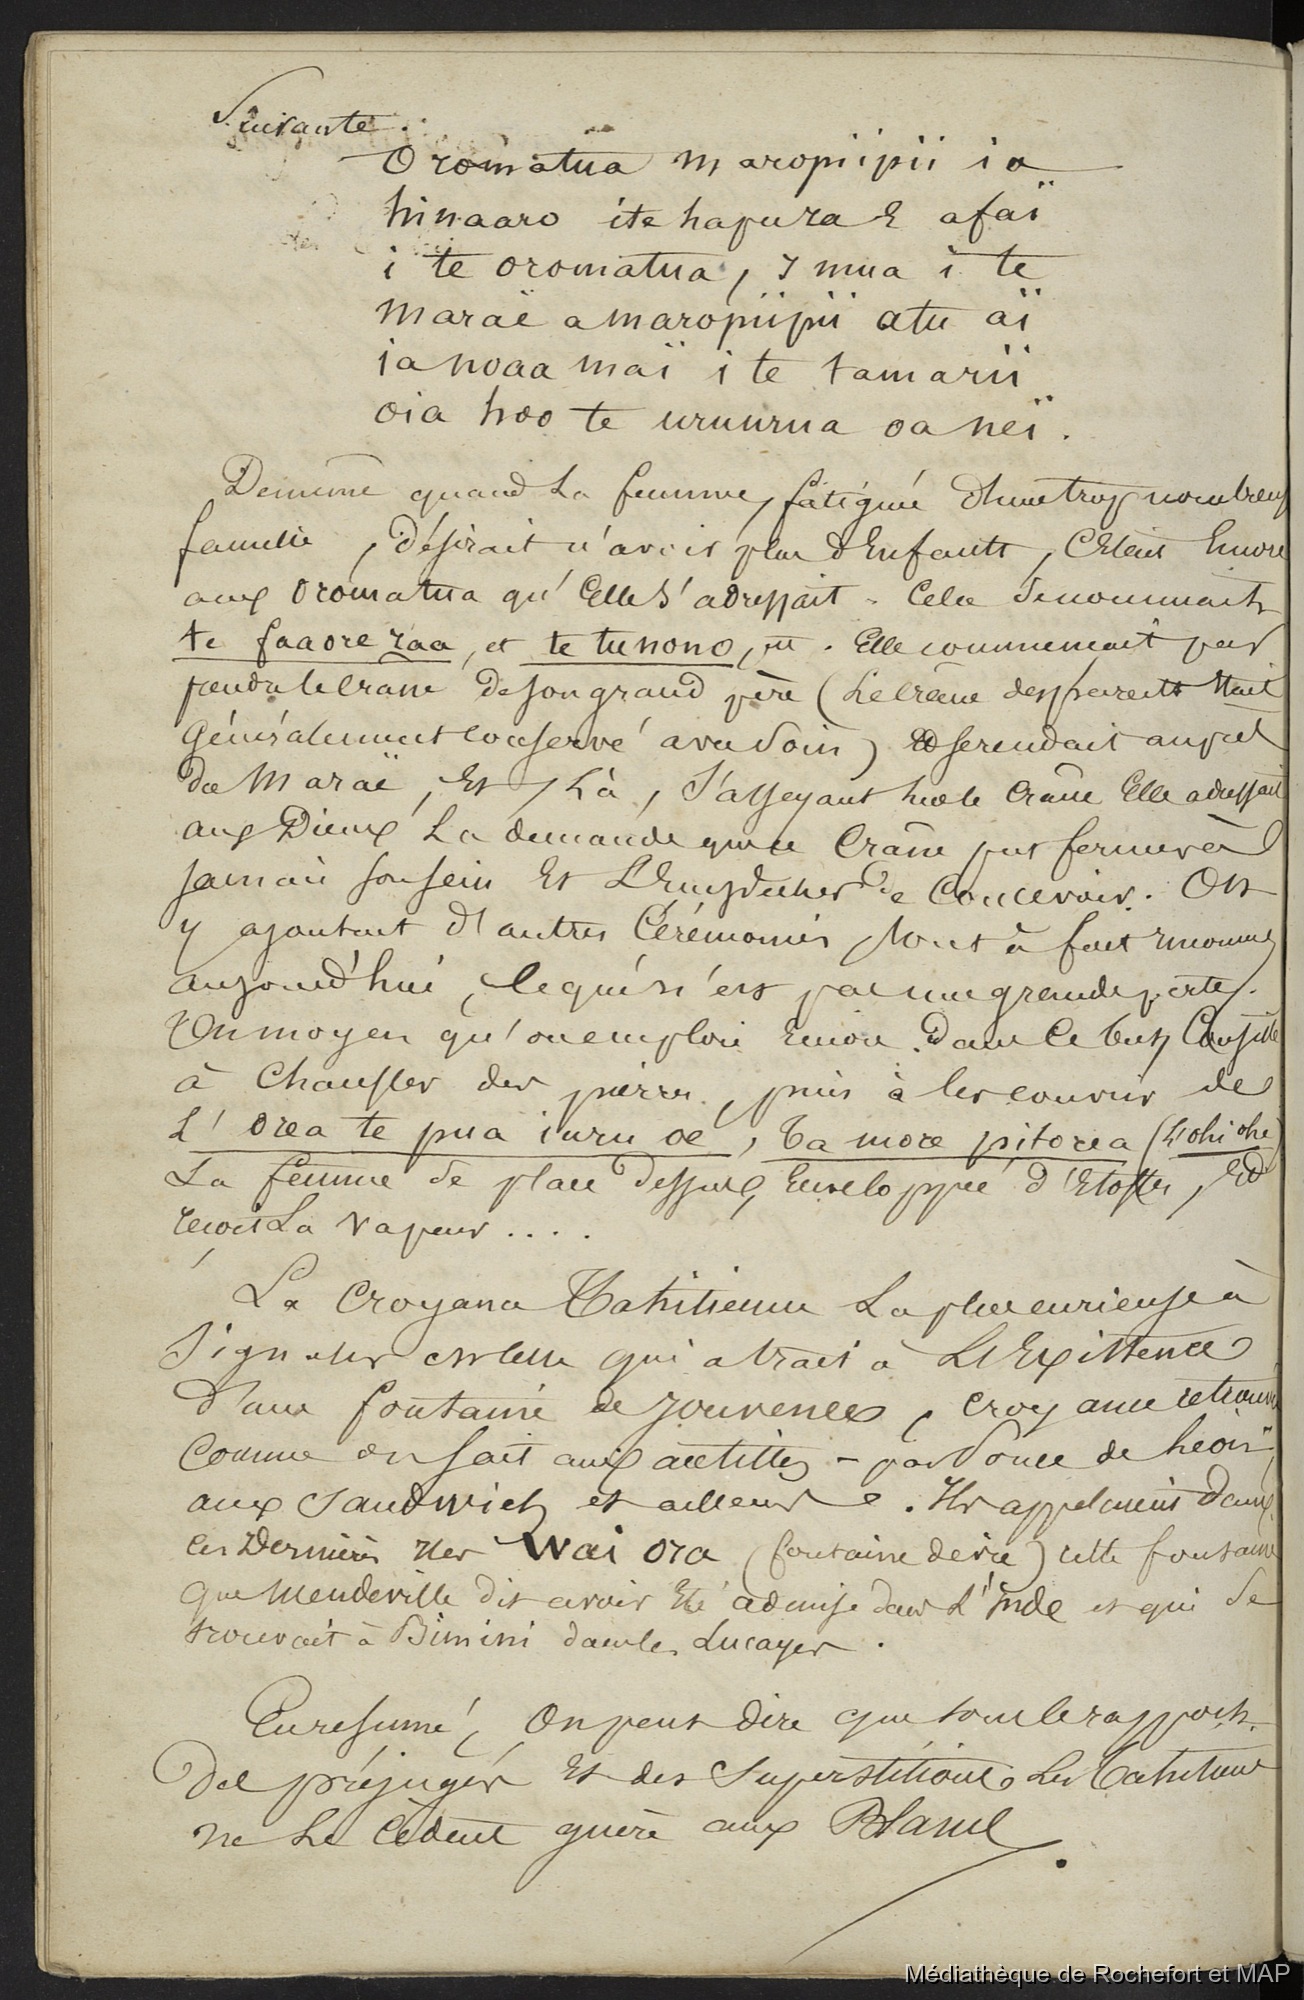 Suivante.
Oromatua maropiipii ia
hinaaro ite hapura E afaï
i te oromatua, i mua i te
maraë a maropiipii atu aï
ia noaa maï i te tamarii
oia hoo te uruurua oa neï.
De même quand la femme, fatiguée d'une trop nombreuse
famille, désirait n'avoir plus d'Enfants, C'Etait Encore
aux oromatua qu'Elle s'adressait. Cela se nommait
te faaore raa, et te tunono, . Elle commençait par
prendre le crane de son grand père (Le Crâne des parents était
Généralement conservé avec soin) Et se rendait auprès
du Maraë, Et là, s'asseyant sur le Crâne Elle adressait
aux Dieux La demande que ce Crâne put fermer à
jamais son sein Et L'Empêcher de Concevoir. On
y ajoutait d'autres Cérémonies, tout à fait inconnues
aujourd'hui, ce qui n'est pas une grande perte.
Un moyen qu'on emploie Encore dans ce but, Consiste
à Chauffer des pierres, puis à les couvrir de
L' orea te pua iuru oe, Ta more pitorea (L'ohi ohe)
La femme se place dessus, Enveloppée d'Etoffes, Et
reçoit La vapeur ....
La Croyance Tahitienne La plus curieuse à
Signaler est celle qui a trait à L'Existence
d'une fontaine de Jouvence, croyance retrouvée
Comme on sait aux antilles - par Ponce de Léon -,
aux Sandwich et ailleurs. Ils appelaient dans
ces Dernières iles Wai ora (fontaine de vie) cette fontaine
Que Mendeville dit avoir Eté admise dans L'Inde et qui se
trouvait à Bimini dans les Lucayes.
En résumé, On peut dire que sous le rapport
Des préjugés Et des Superstitions Les Tahitiens
ne Le Cèdent guère aux Blancs.
Médiathèque de Rochefort et MAP